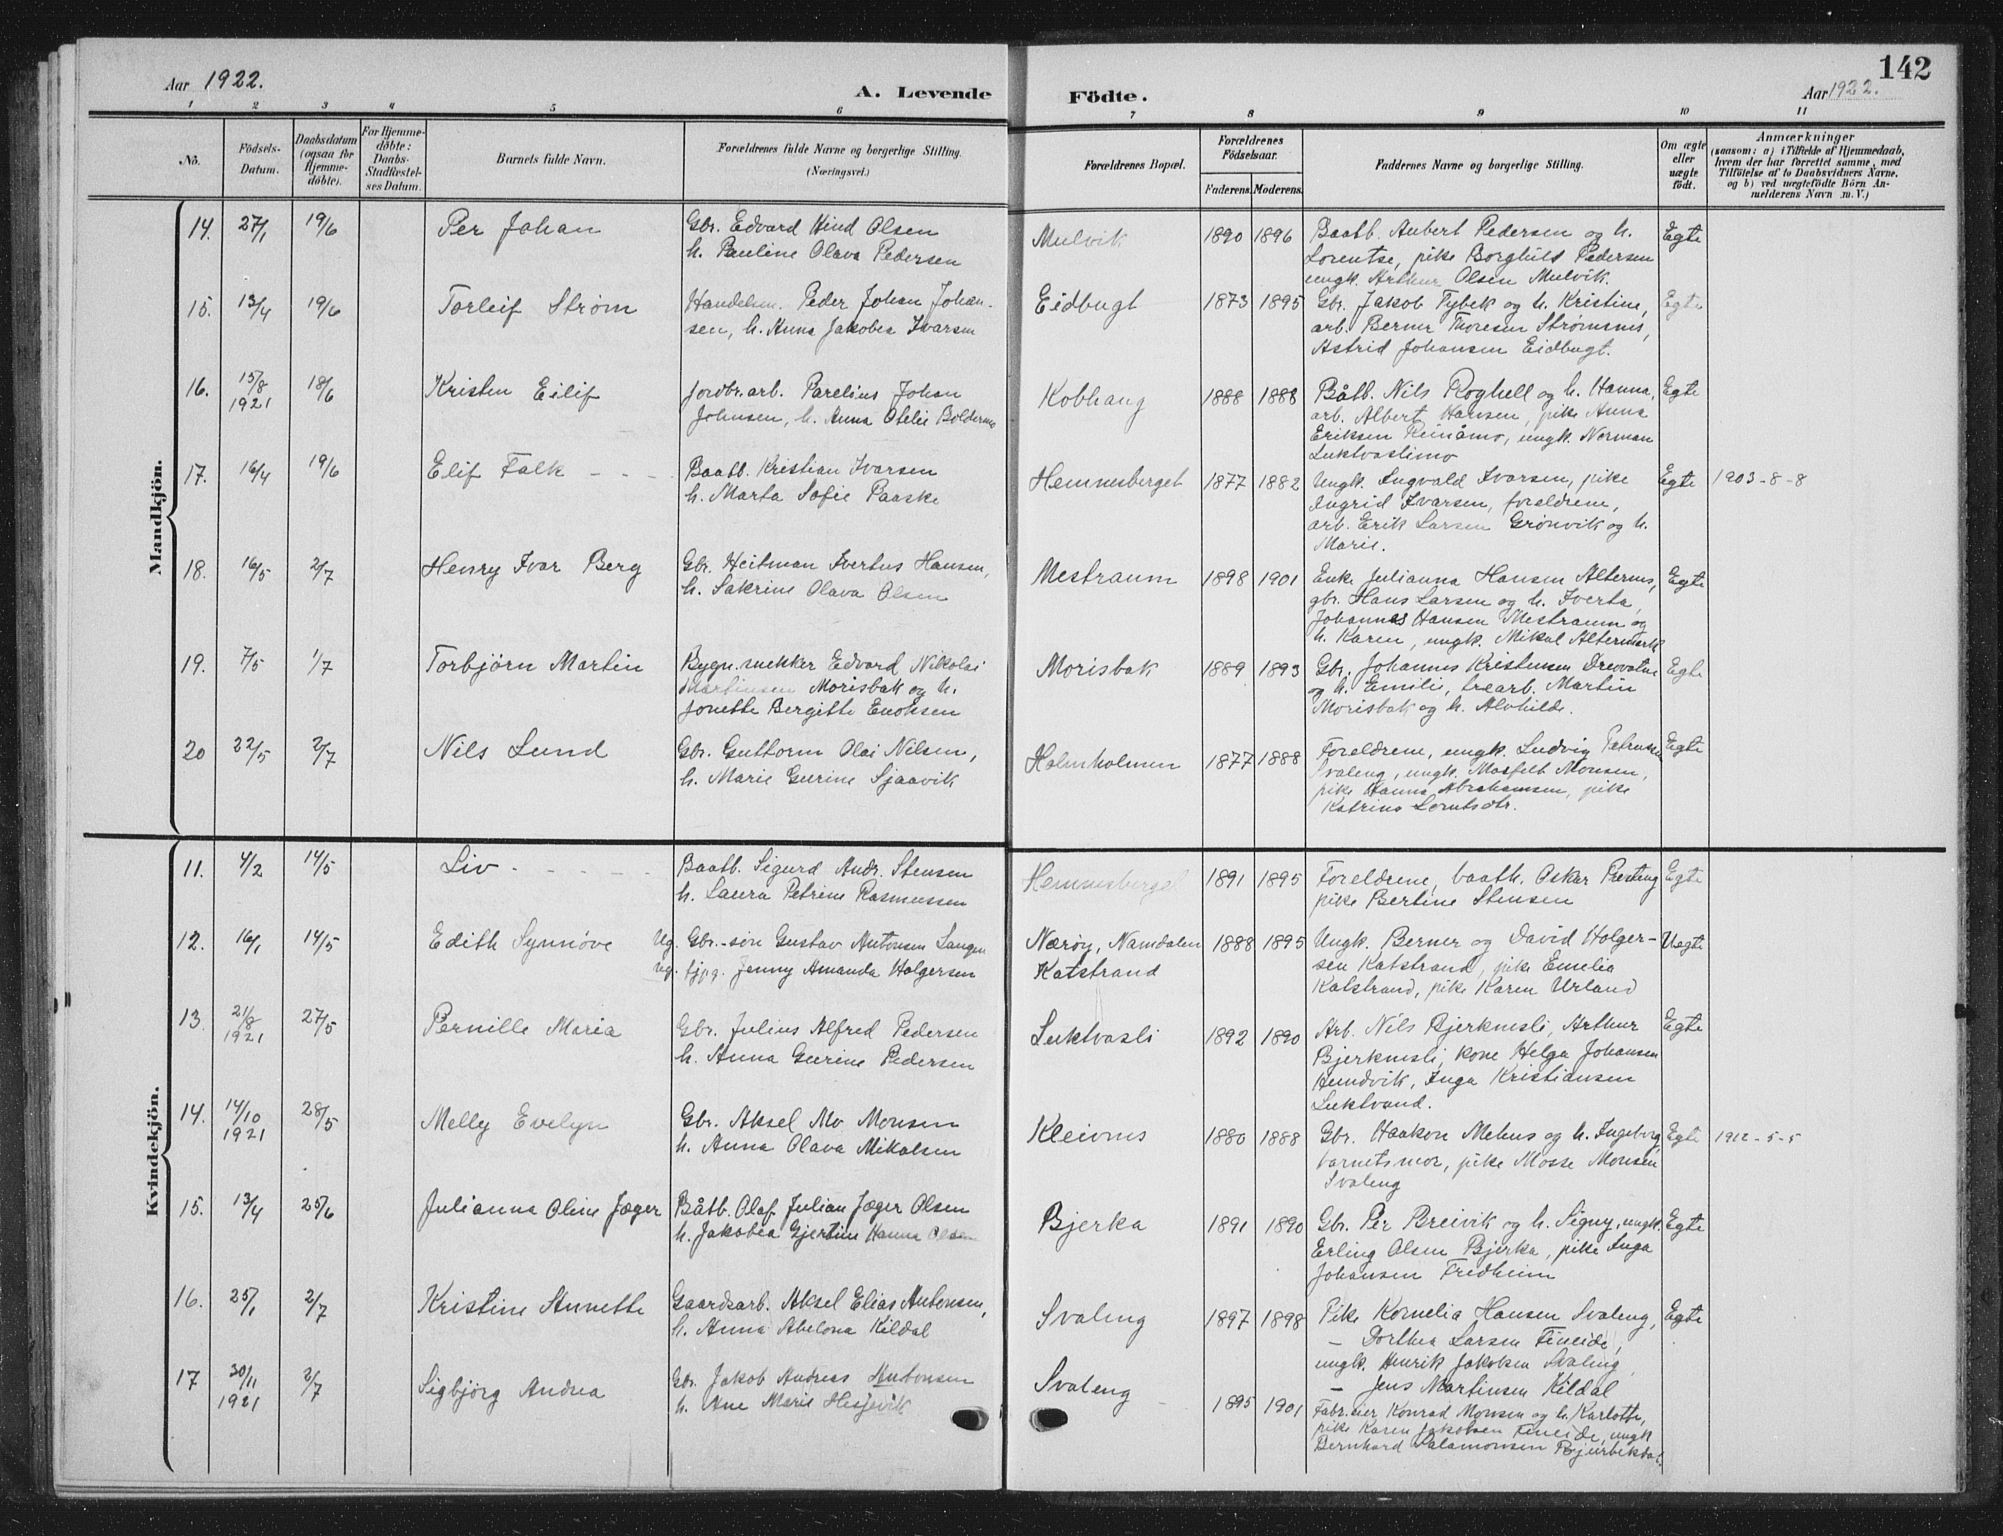 Aar 1922.
A. Levende Födte.
142
Aar 1922.
1 2 3 4 5 6 7 8 9 10 11
No.
Födsels-Datum.
Daabsdatum (ogsaa for Hjemme-döbte).
For Hjemme-döbte: Daabs-Stadfæstel-ses Datum.
Barnets fulde Navn.
Forældrenes fulde Navne og borgerlige Stilling.
(Næringsvei.)
Forældrenes Bopæl.
Forældrenes Födselsaar.
Faderens. Moderens.
Faddernes Navne og borgerlige Stilling.
Om ægte eller uægte födt.
Anmærkninger
(saasom: a) i Tilfælde af Hjemmedaab, hvem der har forrettet samme, med Tilföielse af to Daabsvidners Navne, og b) ved uægtefödte Börn An-melderens Navn m. V.)
Mandkjön.
14. 27/1 19/6 Per Johan
Gbr. Edvard Hind Olsen
h. Pauline Olava Pedersen
Mulvik 1890 1896
Baatb. Anbert Pedersen og h.
Lorentse, pike Borghild Pedersen
ungk. Arthur Olsen Mulvik.
Egte
15. 13/4 19/6 Torleif Strøm
Handelsm. Peder Johan Johan-
sen, h. Anna Jakobea Ivarsen
Eidbugt 1873 1895
Gbr. Jakob Tybek og h. Kristine,
arb. Berner Thoresen Strømsnes,
Astrid Johansen Eidbugt.
Egte
16. 15/8 1921 18/6 Kristen Eilif
Jordbr.arb. Parelius Johan
Johnsen, h. Anna Otelie Boldermo
Kobhaug 1888 1888
Båtb. Nils Roghell og h. Hanna,
arb. Albert Hansen, pike Anna
Eriksen Reinåmo, ungk. Norman
Luktvaslimo
Egte
17. 16/4 19/6 Elif Falk - -
Baatb. Kristian Ivarsen
h. Marta Sofie Paaske
Hemnesberget 1877 1882
Ungk. Ingvald Ivarsen, pike
Ingrid Ivarsen, foreldrene,
arb. Erik Larsen Grønvik og h.
Marie.
Egte 1903-8-8
18. 16/5 2/7 Henry Ivar Berg
Gbr. Heitman Evertus Hansen,
h. Sakrine Olava Olsen
Mestraum 1898 1901
Enke Julianna Hansen Alternes,
gbr. Hans Larsen og h. Iverta,
Johannes Hansen Mestraum og
h. Karen, ungk. Mikal Altermark
Egte
19. 7/5 1/7 Torbjörn Martin
Bygn.snekker Edvard Nikolai
Martinsen Morisbak og h.
Jonette Bergitte Enoksen
Morisbak 1889 1893
Gbr. Johannes Kristensen Drevvatne
og h. Emilie, trearb. Martin
Morisbak og h. Alvhilde.
Egte
20 22/5 2/7 Nils Lund
Gbr. Guttorm Olai Nilsen,
h. Marie Gurine Sjaavik
Holmholmen 1877 1888
Foreldrene, ungk. Ludvig Petrusen
Svaleng, ungk. Mosfelt Monsen,
pike Hanna Abrahamsen, pike
Katrine Lorntsdtr.
Egte
Kvindekjön.
11. 4/2 14/5 Liv - - - - -
Baatb. Sigurd Andr. Stensen
h. Laura Petrine Rasmussen
Hemnesberget 1891 1895
Foreldrene, baatb. Oskar Presteng
pike Bertine Stensen
Egte
12. 16/1 14/5 Edith Synnöve
Ug. Gbr.-søn Gustav Antonsen Langen
ug. tjpg. Jenny Amanda Holgersen
Nærøy, Namdalen
Katstrand
1888 1895
Ungk. Berner og David Holger-
sen Katstrand, pike Emelia
Katstrand, pike Karen Urland
Uegte
13. 21/8 1921 27/5 Pernille Maria
Gbr. Julius Alfred Pedersen
h. Anna Gurine Pedersen
Luktvasli 1892 1890
Arb. Nils Bjerkmsli, Arthur
Bjerkmsli, kone Helga Johansen
Hundvik, Inga Kristiansen
Luktvand.
Egte
14. 14/10 1921 28/5 Melly Evelyn
Gbr. Aksel Mo Monsen
h. Anna Olava Mikalsen
Kleivnes 1880 1888
Gbr. Haakon Mehus og h. Ingeborg,
barnets mor, pike Mosse Monsen
Svaleng
Egte 1912-5-5
15. 13/4 25/6 Julianna Oline Jæger
Båtb. Olaf Julian Jæger Olsen
h. Jakobea Gjertine Hanna Olsen
Bjerka 1891 1890
Gbr. Per Breivik og h. Signy, ungk.
Erling Olsen Bjerka, pike Inga
Johansen Fredheim
Egte
16. 25/1 2/7 Kristine Annette
Gaardsarb. Aksel Elias Antonsen,
h. Anna Abelona Kildal
Svaleng 1897 1898
Pike Kornelia Hansen Svaleng,
- Dorthea Larsen Fineide,
ungk. Henrik Jakobsen Svaleng
- Jens Martinsen Kildal
Egte
17 30/11 1921 2/7 Sigbjörg Andrea
Gbr. Jakob Andreas Antonsen
h. Ane Marie Hesjevik
Svaleng 1895 1901
Fabr.eier Konrad Monsen og h. Karlotte,
pike Karen Jakobsen Fineide, ungk
Bernhard Salamonsen Bjurbekdal.